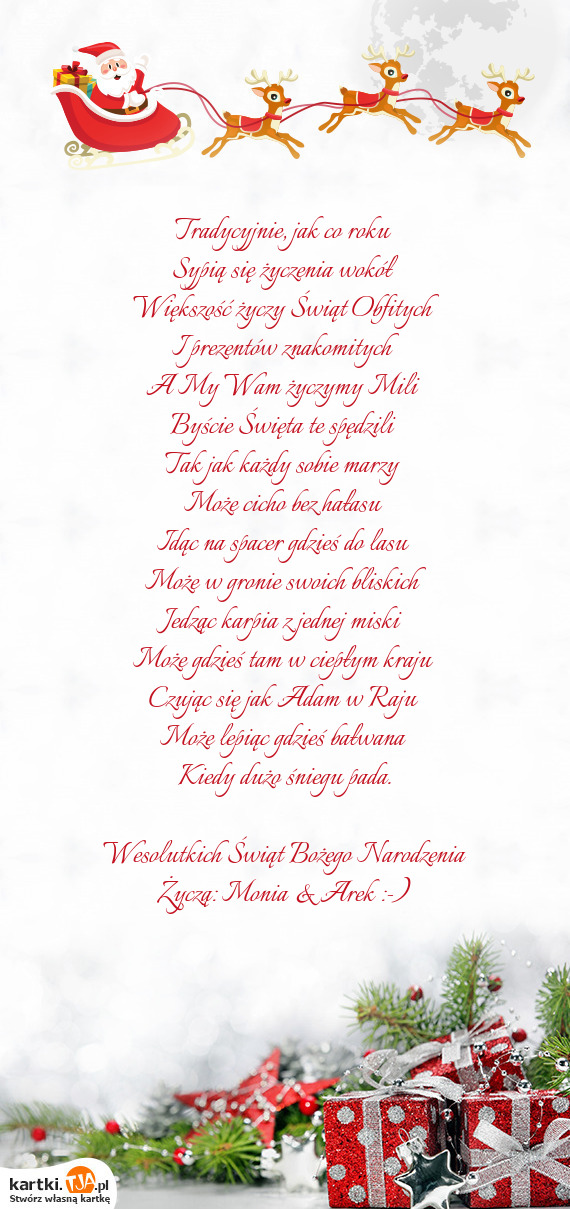 Tradycyjnie, jak co roku
Sypią się życzenia wokół
Większość życzy Świąt Obfitych
I prezentów znakomitych
A My Wam życzymy Mili
Byście Święta te spędzili
Tak jak każdy sobie marzy
Może cicho bez hałasu
Idąc na spacer gdzieś do lasu
Może w gronie swoich bliskich
Jedząc karpia z jednej miski
Może gdzieś tam w ciepłym kraju
Czując się jak Adam w Raju
Może lepiąc gdzieś bałwana
Kiedy dużo śniegu pada.
Wesolutkich Świąt Bożego Narodzenia
Życzą: Monia & Arek :-)
kartki.TJA.pl
Stwórz własną kartkę